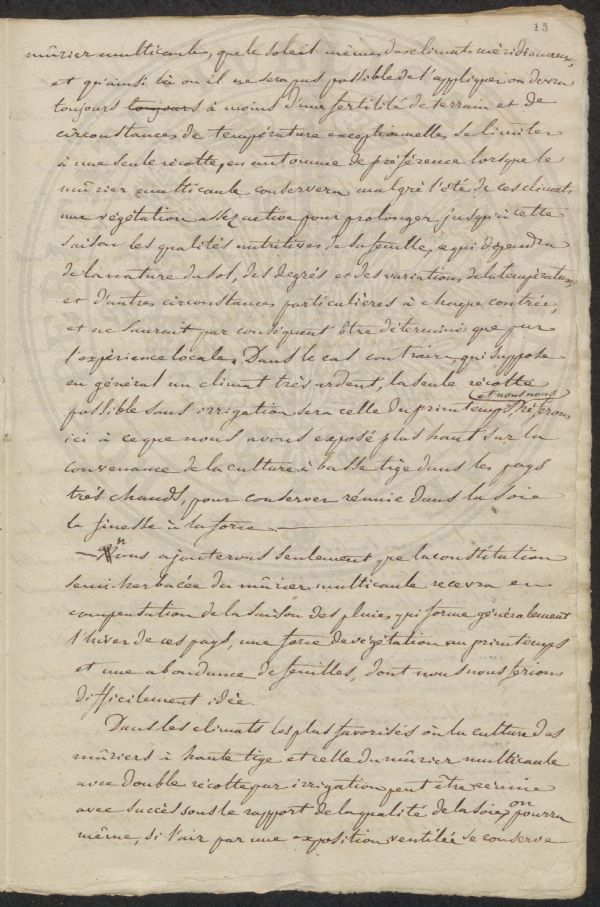 15
mûrier multicaule, que le soleil même des climats méridionaux,
et qu'ainsi là où il ne sera pas possible de l'appliquer on devra
toujours toujours à moins d'une fertilité de terrain et de
circonstances de température exceptionnelles se limiter
à une seule récolte, en automne de préférence lorsque le
mûrier multicaule conservera malgré l'été de ces climats
une végétation assez active pour prolonger jusqu'à cette
saison les qualités nutritives de sa feuille, ce qui dépendra
de la nature du sol, des degrés et des variations de la température,
et d'autres circonstances particulières à chaque contrée,
et ne saurait par conséquent être déterminé que par
l'expérience locale. Dans le cas contraire, qui suppose
en général un climat très ardent, la seule récolte
possible sans irrigation sera celle du printemps, et nous nous référons
ici à ce que nous avons exposé plus haut sur la
convenance de la culture à basse tige dans les pays
très chauds, pour conserver réunie dans la soie
la finesse à la force.
nous ajouterons seulement que la constitution
semi-herbacée du mûrier multicaule recevra en
compensation de la saison des pluies, qui forme généralement
l'hiver de ces pays, une force de végétation au printemps
et une abondance de feuilles, dont nous nous ferions
difficilement idée.
Dans les climats les plus favorisés où la culture des
mûriers à haute tige et celle du mûrier multicaule
avec double récolte par irrigation peut être réunie
avec succès sous le rapport de la qualité de la soie, on pourra
même, si l'air par une exposition ventilée se conserve